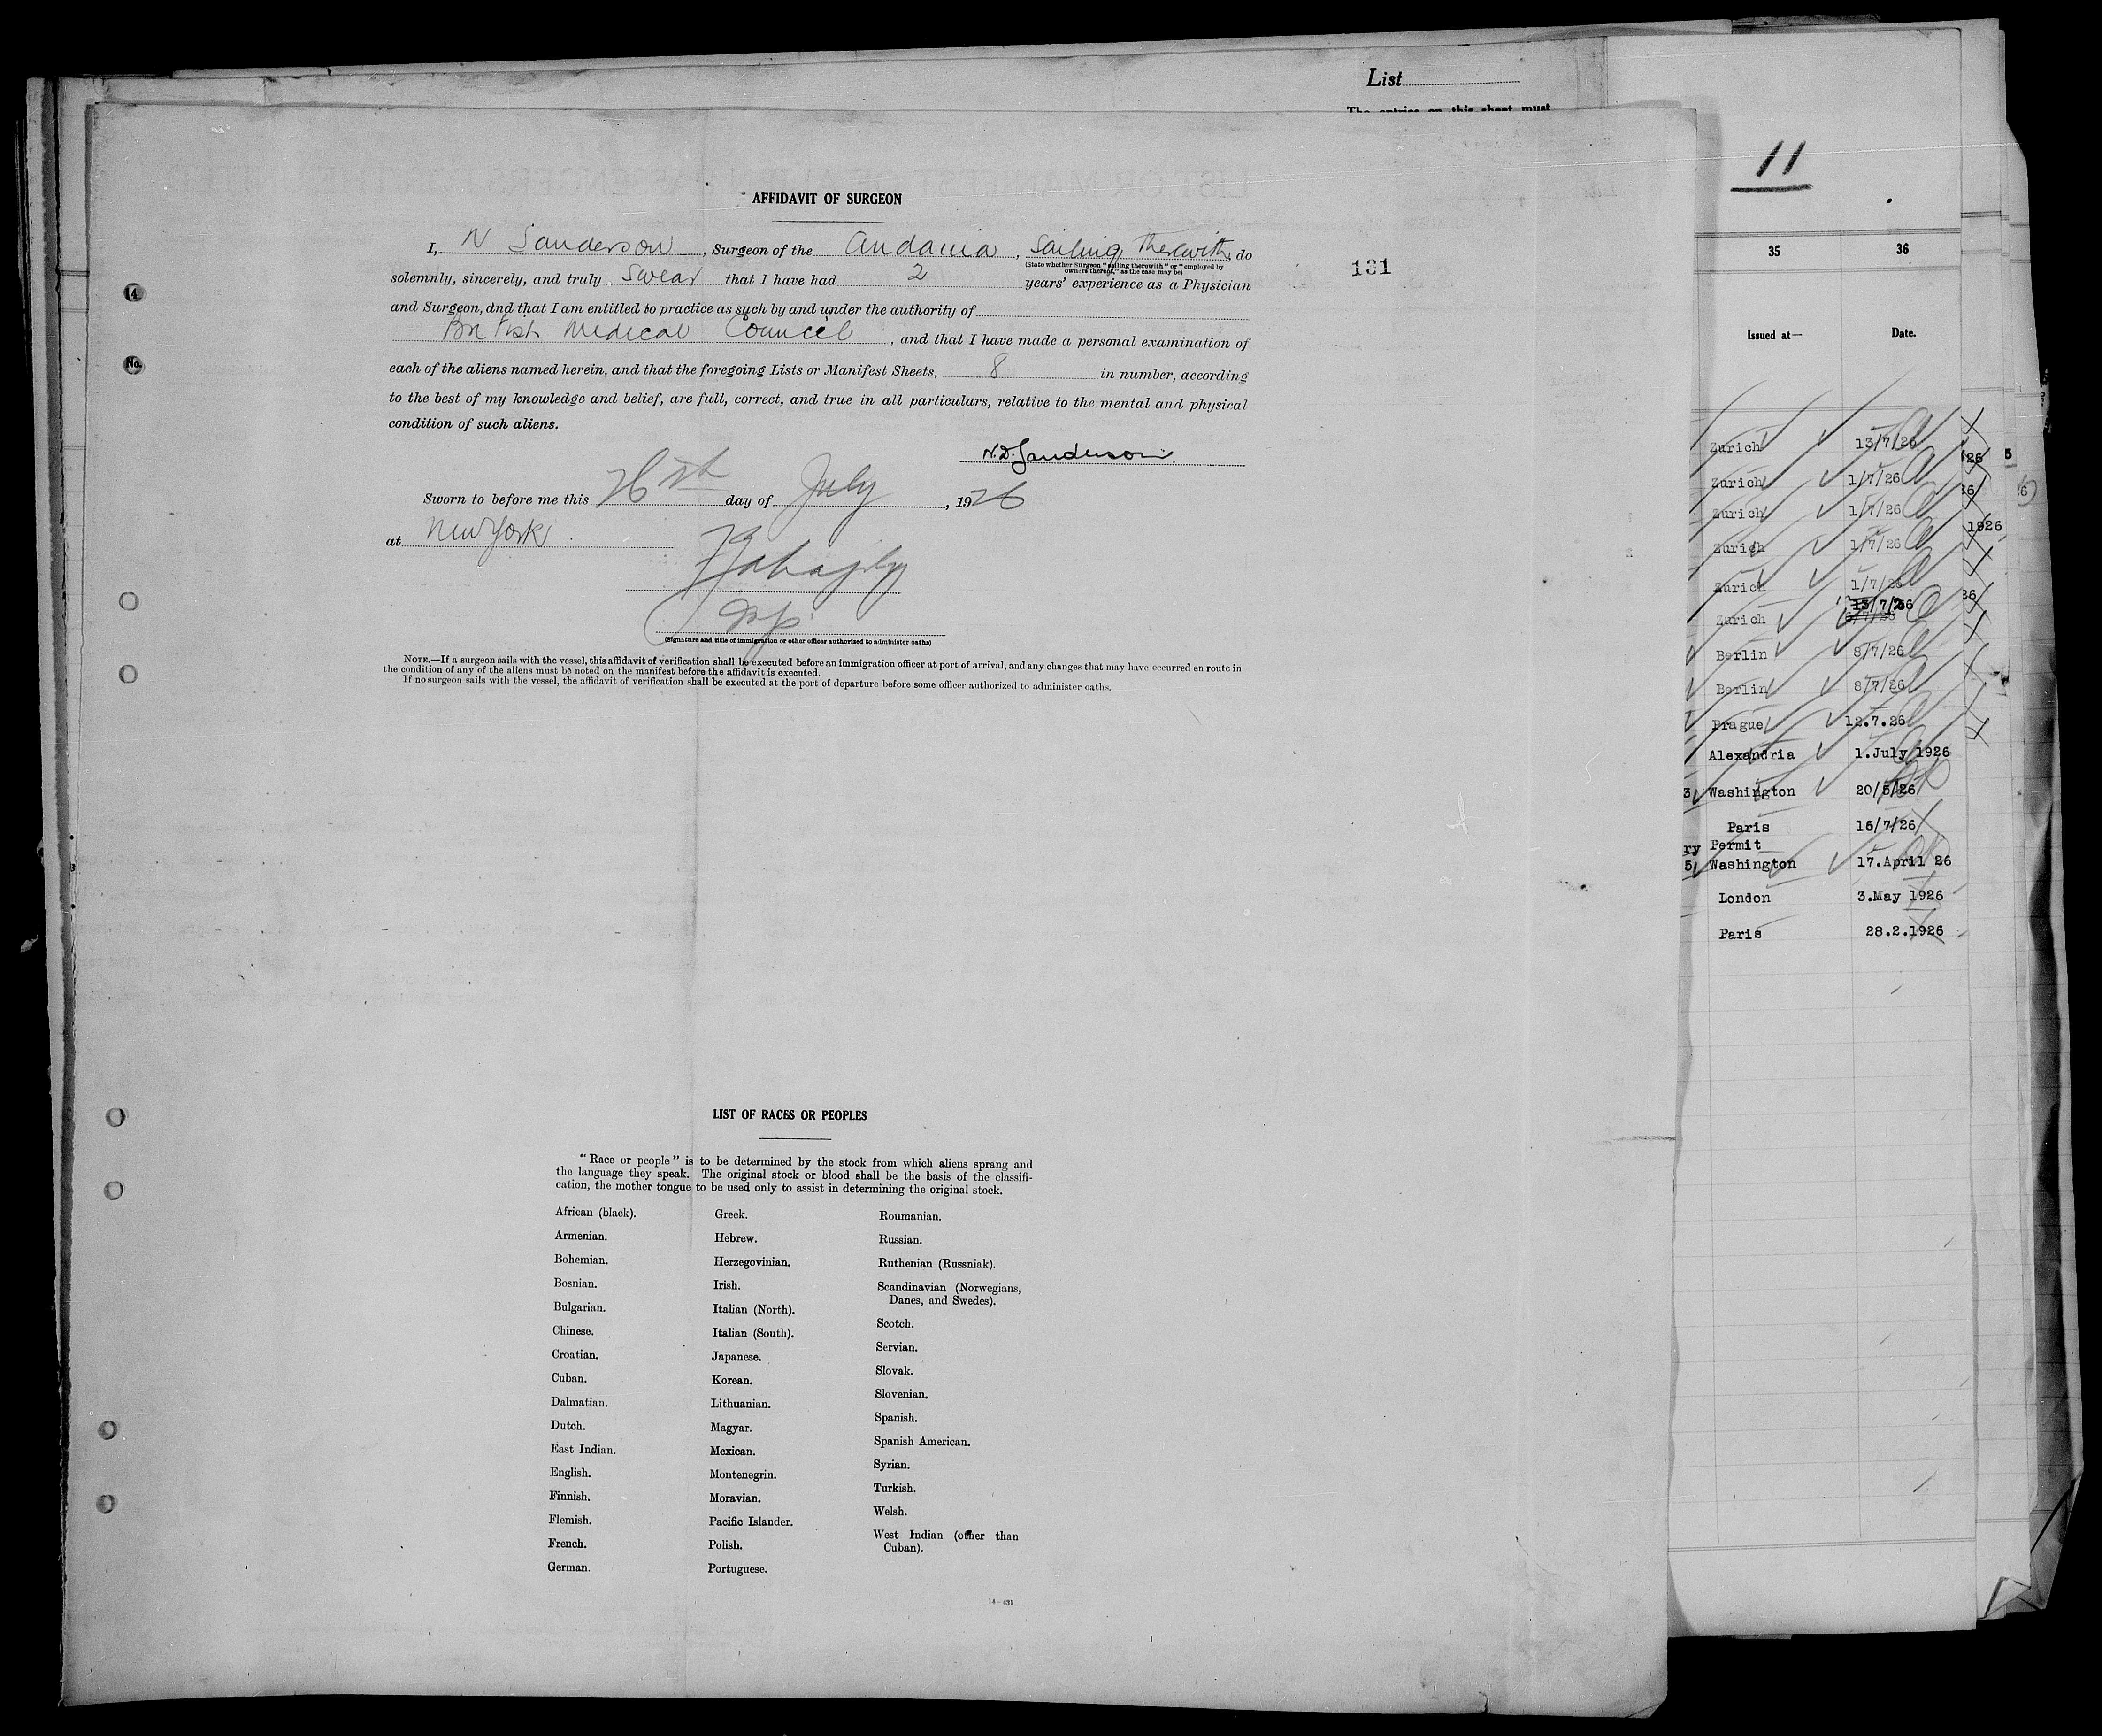 List
The entries on this sheet must
AFFIDAVIT OF SURGEON
I, N Sanderson, Surgeon of the Andania, Sailing Therewith, do
(State whether Surgeon "sailing therewith" or "employed by
owners thereof," as the case may be)
solemnly, sincerely, and truly swear that I have had 2 years' experience as a Physician
and Surgeon, and that I am entitled to practice as such by and under the authority of
British Medical Council, and that I have made a personal examination of
each of the aliens named herein, and that the foregoing Lists or Manifest Sheets, 8 in number, according
to the best of my knowledge and belief, are full, correct, and true in all particulars, relative to the mental and physical
condition of such aliens.
N.D. Sanderson.
Sworn to before me this 26th day of July, 1926
at New York
(Signature and title of immigration or other officer authorized to administer oaths)
NOTE.—If a surgeon sails with the vessel, this affidavit of verification shall be executed before an immigration officer at port of arrival, and any changes that may have occurred en route in
the condition of any of the aliens must be noted on the manifest before the affidavit is executed.
If no surgeon sails with the vessel, the affidavit of verification shall be executed at the port of departure before some officer authorized to administer oaths.
14
No.
131
LIST OF RACES OR PEOPLES
"Race or people" is to be determined by the stock from which aliens sprang and
the language they speak. The original stock or blood shall be the basis of the classifi-
cation, the mother tongue to be used only to assist in determining the original stock.
African (black).
Armenian.
Bohemian.
Bosnian.
Bulgarian.
Chinese.
Croatian.
Cuban.
Dalmatian.
Dutch.
East Indian.
English.
Finnish.
Flemish.
French.
German.
Greek.
Hebrew.
Herzegovinian.
Irish.
Italian (North).
Italian (South).
Japanese.
Korean.
Lithuanian.
Magyar.
Mexican.
Montenegrin.
Moravian.
Pacific Islander.
Polish.
Portuguese.
Roumanian.
Russian.
Ruthenian (Russniak).
Scandinavian (Norwegians,
Danes, and Swedes).
Scotch.
Servian.
Slovak.
Slovenian.
Spanish.
Spanish American.
Syrian.
Turkish.
Welsh.
West Indian (other than
Cuban).
14—431
11
35 36
Issued at— Date.
Zurich 13/7/26
Zurich 1/7/26
Zurich 1/7/26
Zurich 1/7/26
Zurich 1/7/26
Zurich 13/7/26
Berlin 8/7/26
Berlin 8/7/26
Prague 12.7.26
Alexandria 1.July 1926
Washington 20/5/26
Paris 15/7/26
ry Permit
Washington 17.April 26
London 3.May 1926
Paris 28.2.1926
1926